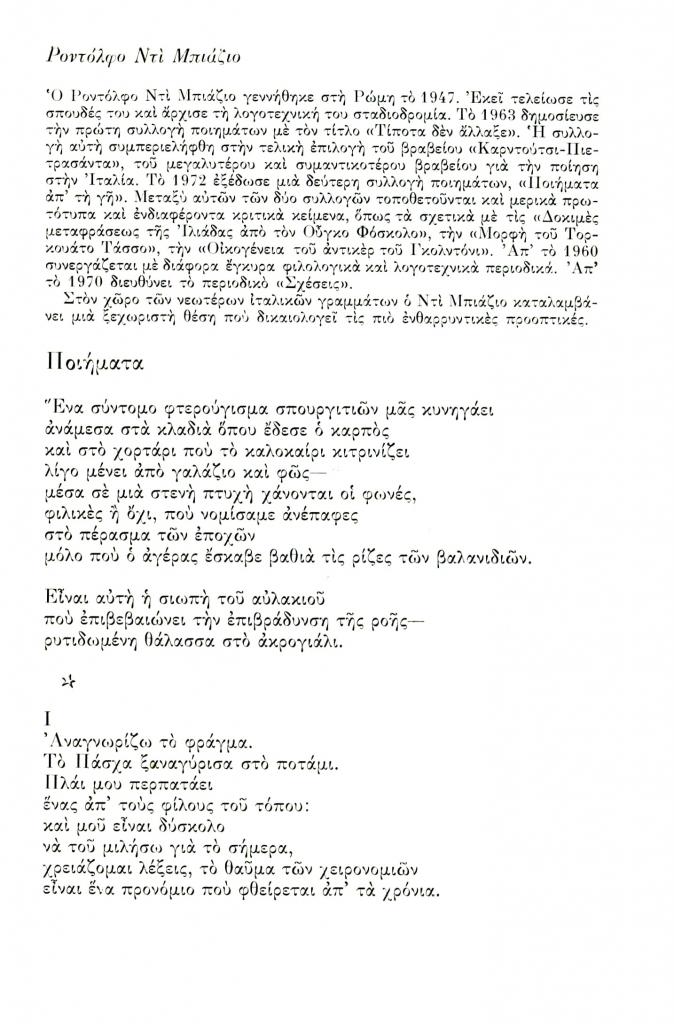 Ροντόλφο Ντὶ Μπιάζιο
Ὁ Ροντόλφο Ντὶ Μπιάζιο γεννήθηκε στὴ Ρώμη τὸ 1947. Ἐκεῖ τελείωσε τὶς
σπουδές του καὶ ἄρχισε τὴ λογοτεχνική του σταδιοδρομία. Τὸ 1963 δημοσίευσε
τὴν πρώτη συλλογὴ ποιημάτων μὲ τὸν τίτλο «Τίποτα δὲν ἄλλαξε». Ἡ συλλο-
γὴ αὐτὴ συμπεριελήφθη στὴν τελικὴ ἐπιλογὴ τοῦ βραβείου «Καρντούτσι-Πιε-
τρασάντα», τοῦ μεγαλυτέρου καὶ συμαντικοτέρου βραβείου γιὰ τὴν ποίηση
στὴν Ἰταλία. Τὸ 1972 ἐξέδωσε μιὰ δεύτερη συλλογὴ ποιημάτων, «Ποιήματα
ἀπ' τὴ γῆ». Μεταξὺ αὐτῶν τῶν δύο συλλογῶν τοποθετοῦνται καὶ μερικὰ πρω-
τότυπα καὶ ἐνδιαφέροντα κριτικὰ κείμενα, ὅπως τὰ σχετικὰ μὲ τὶς «Δοκιμὲς
μεταφράσεως τῆς Ἰλιάδας ἀπὸ τὸν Οὖγκο Φόσκολο», τὴν «Μορφὴ τοῦ Τορ-
κουάτο Τάσσο», τὴν «Οἰκογένεια τοῦ ἀντικὲρ τοῦ Γκολντόνι». Ἀπ' τὸ 1960
συνεργάζεται μὲ διάφορα ἔγκυρα φιλολογικὰ καὶ λογοτεχνικὰ περιοδικά. Ἀπ'
τὸ 1970 διευθύνει τὸ περιοδικὸ «Σχέσεις».
Στὸν χῶρο τῶν νεωτέρων ἰταλικῶν γραμμάτων ὁ Ντὶ Μπιάζιο καταλαμβά-
νει μιὰ ξεχωριστὴ θέση ποὺ δικαιολογεῖ τὶς πιὸ ἐνθαρρυντικὲς προοπτικές.
Ποιήματα
Ἕνα σύντομο φτερούγισμα σπουργιτιῶν μᾶς κυνηγάει
ἀνάμεσα στὰ κλαδιὰ ὅπου ἔδεσε ὁ καρπὸς
καὶ στὸ χορτάρι ποὺ τὸ καλοκαίρι κιτρινίζει
λίγο μένει ἀπὸ γαλάζιο καὶ φῶς—
μέσα σὲ μιὰ στενὴ πτυχὴ χάνονται οἱ φωνές,
φιλικὲς ἢ ὄχι, ποὺ νομίσαμε ἀνέπαφες
στὸ πέρασμα τῶν ἐποχῶν
μόλο ποὺ ὁ ἀγέρας ἔσκαβε βαθιὰ τὶς ρίζες τῶν βαλανιδιῶν.
Εἶναι αὐτὴ ἡ σιωπὴ τοῦ αὐλακιοῦ
ποὺ ἐπιβεβαιώνει τὴν ἐπιβράδυνση τῆς ροῆς—
ρυτιδωμένη θάλασσα στὸ ἀκρογιάλι.
I
Ἀναγνωρίζω τὸ φράγμα.
Τὸ Πάσχα ξαναγύρισα στὸ ποτάμι.
Πλάι μου περπατάει
ἕνας ἀπ' τοὺς φίλους τοῦ τόπου:
καὶ μοῦ εἶναι δύσκολο
νὰ τοῦ μιλήσω γιὰ τὸ σήμερα,
χρειάζομαι λέξεις, τὸ θαῦμα τῶν χειρονομιῶν
εἶναι ἕνα προνόμιο ποὺ φθείρεται ἀπ' τὰ χρόνια.